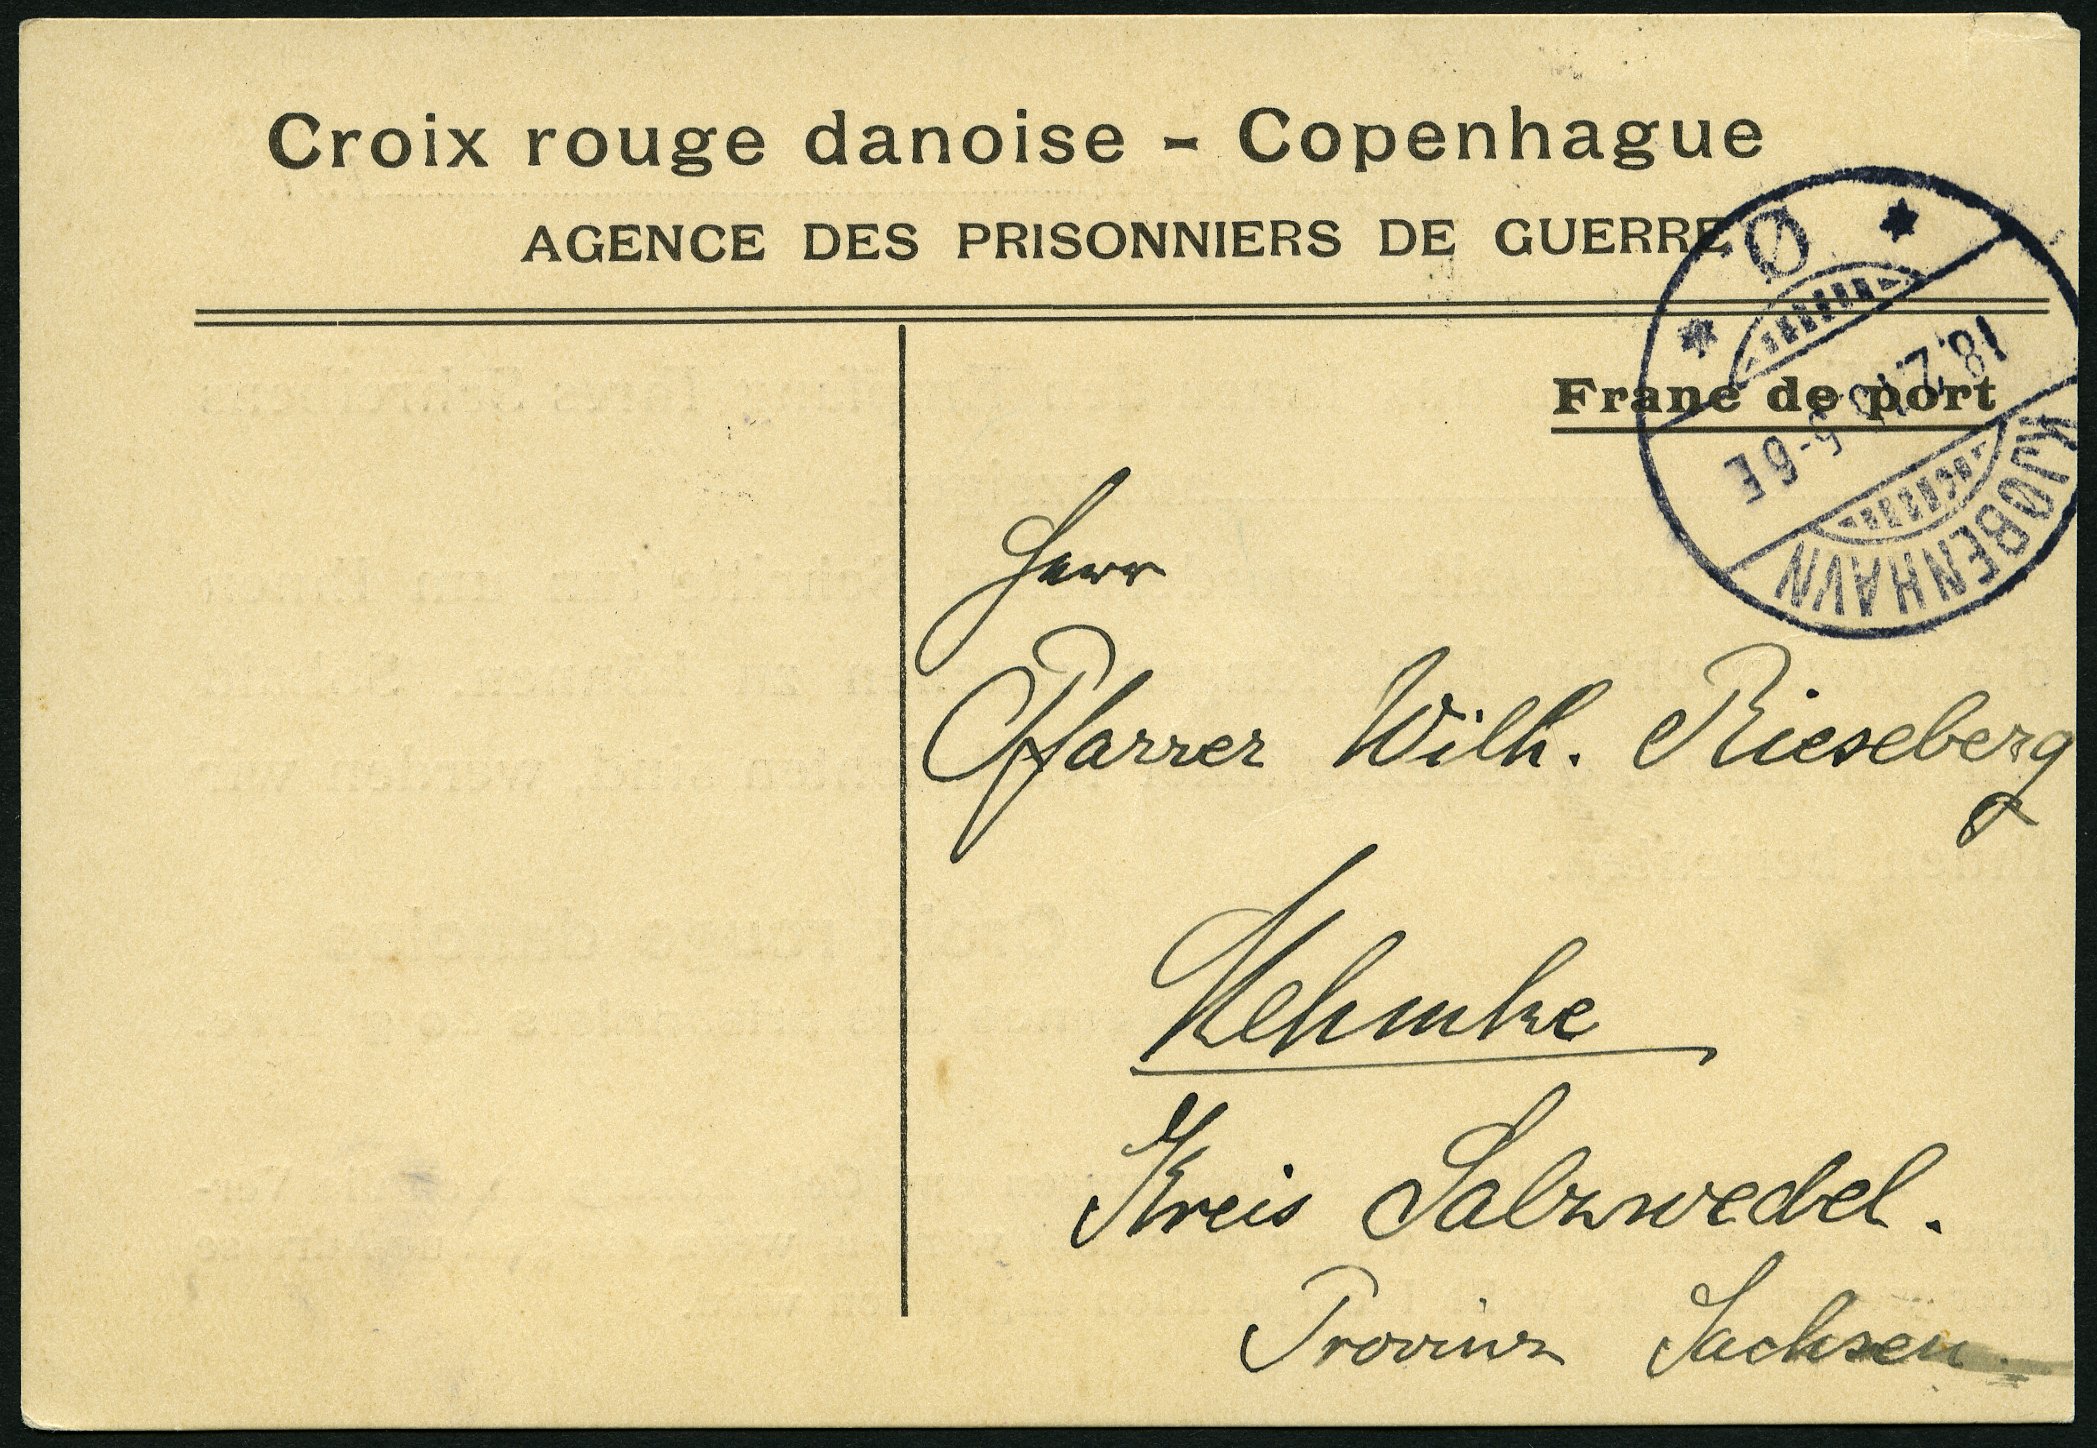 Croix rouge danoise - Copenhague
AGENCE DES PRISONNIERS DE GUERRE
Franc de port
Ø
5-6E
KJØBENHAVN
Herr
Pfarrer Wilh. Rieseberg
Mehmke
Kreis Salzwedel.
Provinz Sachsen.